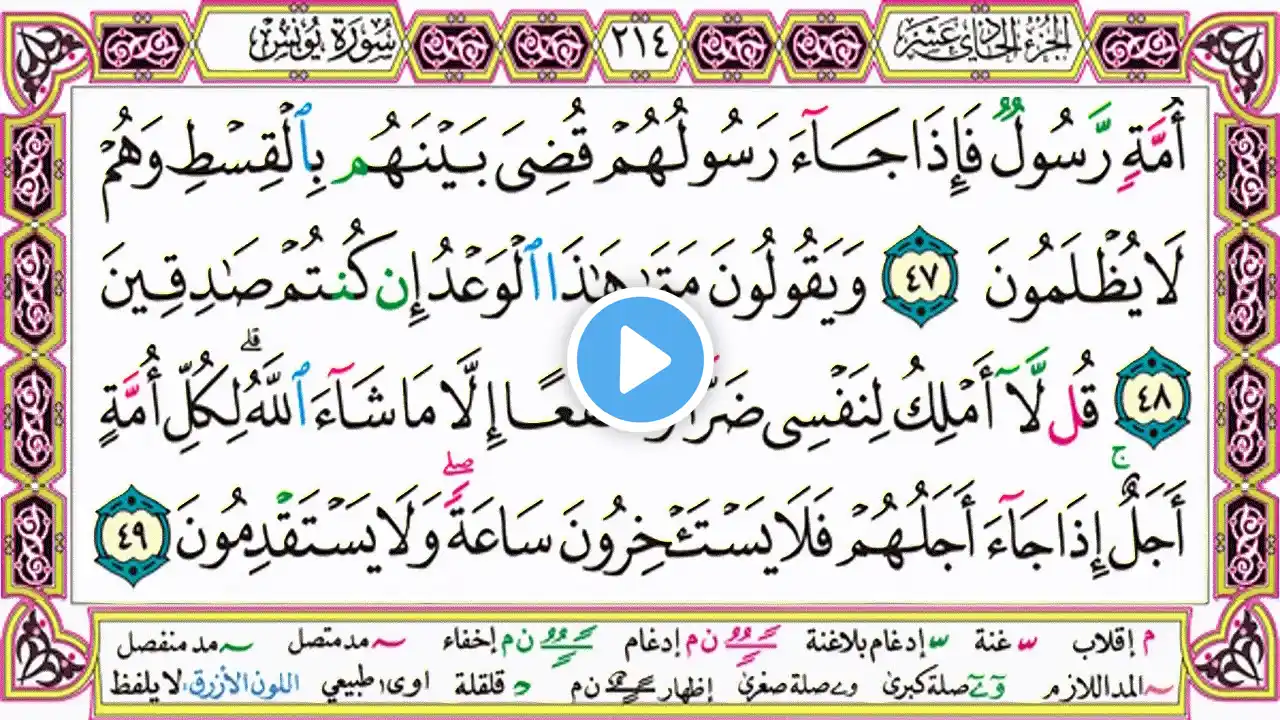 سُورَةُ يُونُسَ ٢١٤ الجزء الحادي عشر
أُمَّةٍ رَّسُولٌ فَإِذَا جَآءَ رَسُولُهُمْ قُضِىَ بَيْنَهُم بِٱلْقِسْطِ وَهُمْ
لَا يُظْلَمُونَ ٤٧ وَيَقُولُونَ مَتَىٰ هَٰذَا ٱلْوَعْدُ إِن كُنتُمْ صَٰدِقِينَ
٤٨ قُل لَّآ أَمْلِكُ لِنَفْسِى ضَرًّا إِلَّا مَا شَآءَ ٱللَّهُ ۗ لِكُلِّ أُمَّةٍ
أَجَلٌ ۚ إِذَا جَآءَ أَجَلُهُمْ فَلَا يَسْتَـْٔخِرُونَ سَاعَةً ۖ وَلَا يَسْتَقْدِمُونَ ٤٩
م إقلاب ّ غنة ّ إدغام بلاغنة ن م إدغام ن م إخفاء ~ مد متصل ~ مد منفصل
~ المد اللازم و ے صلة كبرى و ے صلة صغرى إظهار ن م د قلقلة اوى طبيعي اللون الأزرق لا يلفظ